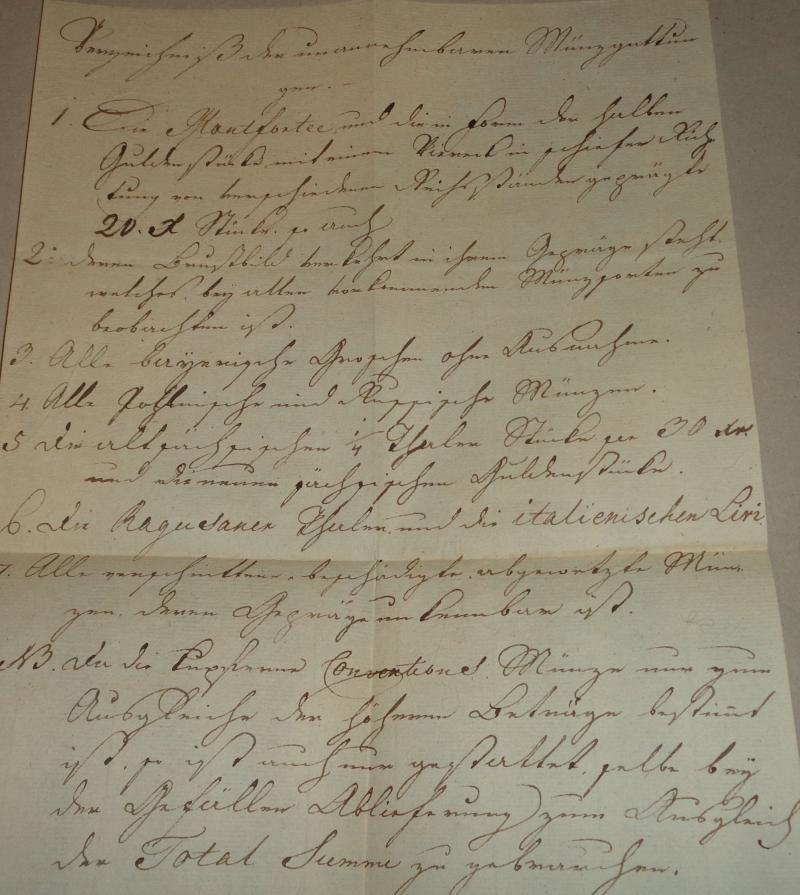 Verzeichniß der unannehmbaren Münzgattun
gen. -
1. Die Montfortee und die in Form der halben
Guldenstücke mit einem Viereck in schiefer Rich
tung von verschiedenen Reichsständen geprägte
20. X Stück. so auch
2: deren Brustbild verkehrt in ihrem Gepräge steht.
welches bey allen vorkommenden Münzsorten zu
beobachten ist.
3. Alle bayerische Groschen ohne Ausnahme.
4. Alle Pohlnische und Russische Münzen.
5 Die altsächsischen 1/4 Thaler Stücke per 30 xr.
und die neuen sächsischen Guldenstücke.
6. Die Ragusaner Thaler und die italienischen Liri.
7. Alle verschnittene, beschädigte, abgewetzte Mün
zen. deren Gepräge unkennbar ist.
NB. Da die kupferne Conventions Münze nur zum
Ausgleiche der höheren Beträge bestimmt
ist. so ist auch nur gestattet, selbe bey
der Gefällen Ablieferung zum Ausgleich
der Total Summe zu gebrauchen.